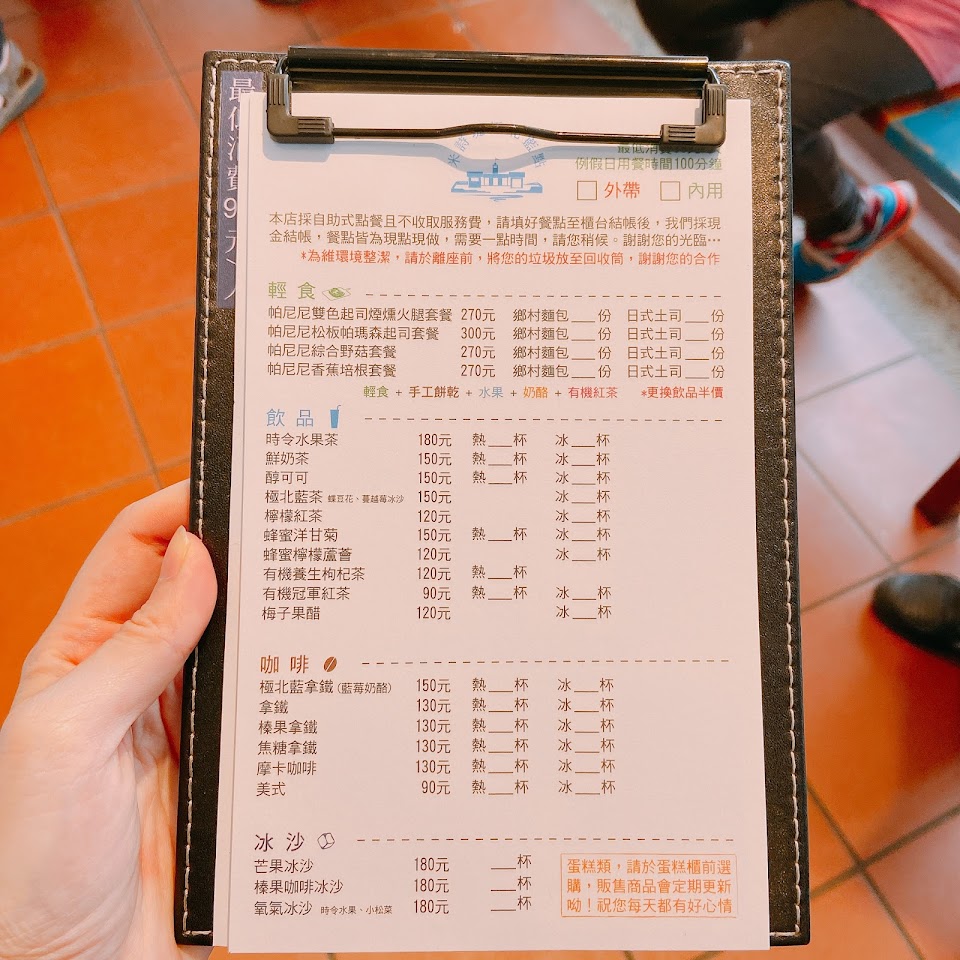 最低消費9
最低消費
例假日用餐時間100分鐘
□ 外帶 □ 內用
本店採自助式點餐且不收取服務費，請填好餐點至櫃台結帳後，我們採現
金結帳，餐點皆為現點現做，需要一點時間，請您稍候。謝謝您的光臨…
*為維環境整潔，請於離座前，將您的垃圾放至回收筒，謝謝您的合作
輕食
帕尼尼雙色起司煙燻火腿套餐 270元 鄉村麵包___份 日式土司___份
帕尼尼松板帕瑪森起司套餐 300元 鄉村麵包___份 日式土司___份
帕尼尼綜合野菇套餐 270元 鄉村麵包___份 日式土司___份
帕尼尼香蕉培根套餐 270元 鄉村麵包___份 日式土司___份
輕食 + 手工餅乾 + 水果 + 奶酪 + 有機紅茶 *更換飲品半價
飲品
時令水果茶 180元 熱___杯 冰___杯
鮮奶茶 150元 熱___杯 冰___杯
醇可可 150元 熱___杯 冰___杯
極北藍茶 蝶豆花、蔓越莓冰沙 150元 冰___杯
檸檬紅茶 120元 冰___杯
蜂蜜洋甘菊 150元 熱___杯 冰___杯
蜂蜜檸檬蘆薈 120元 冰___杯
有機養生枸杞茶 120元 熱___杯
有機冠軍紅茶 90元 熱___杯 冰___杯
梅子果醋 120元 冰___杯
咖啡
極北藍拿鐵(藍莓奶酪) 150元 熱___杯 冰___杯
拿鐵 130元 熱___杯 冰___杯
榛果拿鐵 130元 熱___杯 冰___杯
焦糖拿鐵 130元 熱___杯 冰___杯
摩卡咖啡 130元 熱___杯 冰___杯
美式 90元 熱___杯 冰___杯
冰沙
芒果冰沙 180元 ___杯
榛果咖啡冰沙 180元 ___杯
氧氣冰沙 時令水果、小松菜 180元 ___杯
蛋糕類，請於蛋糕櫃前選
購，販售商品會定期更新
呦！祝您每天都有好心情